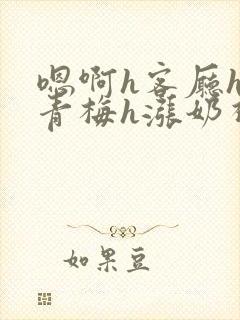 嗯啊h客厅h
青梅h涨奶
如果豆